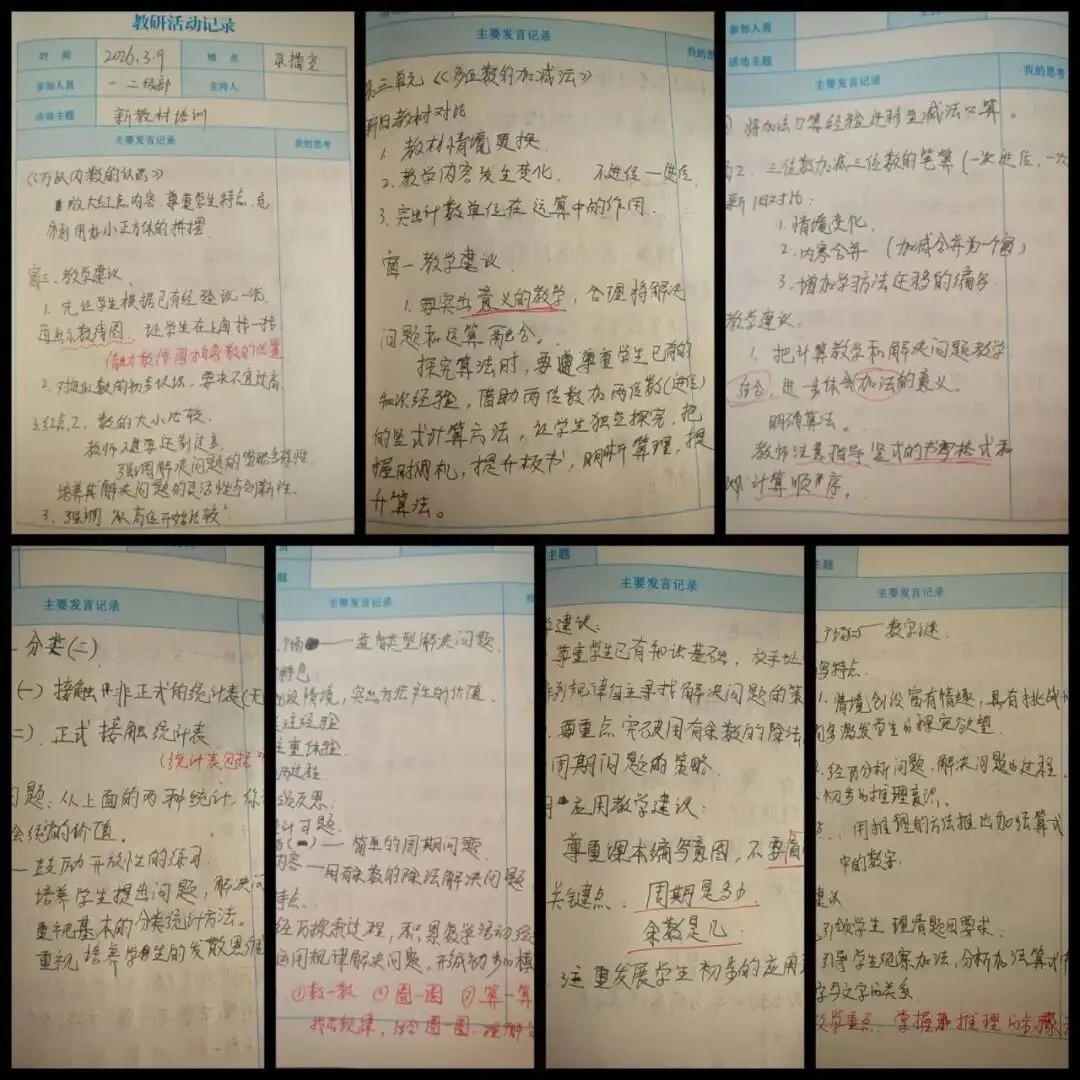 教研活动记录
时 间 2026.3.9 地 点 录播室
参加人员 一·二级部 主持人
活动主题 新教材培训
主要发言记录 我的思考
《万以内数的认识》
放大红点内容,尊重学生特点,充
分利用好小正方体的拼摆.
窗三、教学建议.
1. 先让学生根据已有经验说一说,
再出示数线图、让学生在上面排一排
借助数线图
2. 对近似数的初步认识,要求不宜过高.
3.红点2、数的大小比较.
教师不要
强调解决问题的策略多样性,
培养其解决问题的灵活性与创新性.
3、强调"从高位开始比较"
主要发言记录 我的思
第三单元《多位数的加减法》
新旧教材对比
1. 教材情境更换.
2. 教学内容发生变化. 不进位—进位.
3. 突出计数单位在运算中的作用.
窗一教学建议.
1. 要突出意义的教学,合理将解决
问题和运算融合。
探究算法时,要遵尊重学生已有的
知识经验,借助两位数加两位数(进位)
的竖式计算方法,让学生独立探究,把
握时机,提升板书,明晰算理,提
升算法。
参加人员
活动主题
主要发言记录 我的思考
将加法口算经验迁移至减法口算。
2、三位数加减三位数的笔算(一次进位,一次
新旧对比:
1.情境变化.
2.内容合并 (加减合并为一个窗)
3.增加学习方法迁移的编写.
教学建议.
1. 把计算教学和解决问题教学
结合,进一步体会加法的意义.
明确算法.
教师注意指导竖式的书写格式和
计算顺序。
主要发言记录
分类(二)
(一)接触非正式的统计表(无
二). 正式接触统计表
(统计表包括
问题:从上面的两种统计,你
会统的价值.
鼓励开放性的练习.
培养学生提出问题,解决问
重视基本的分类统计方法。
重视培养学生的发散思维
题
主要发言记录
类型解决问题.
特色:
创设情境,突出方法产生的价值.
注重体验
历过程
反思:
(一)—简单的周期问题
内容—用有余数的除法解决问题
特点.
经历探索过程,积累数学活动经
运用规律解决问题,形成初步的模
①数一数 ②圈一圈 ③算一算
找出规律,结合圈一圈,理解
主题
主要发言记录
建议:
尊重学生已有知识基础,放手让
规律自主寻找解决问题的策
要重点突破用有余数的除法
周期问题的策略.
应用教学建议:
尊重课本编写意图,不要
关键点: 周期是多少
余数是几.
注重发展学生初步的应用
主题
主要发言记录
—数字谜.
写特点.
1.情境创设富有情趣,具有挑战
激发学生的探究欲望
经历分析问题、解决问题的过程
初步的推理意识.
用推理的方法推出加法算式
中的数字.
建议
引领学生理清题目要求.
引导学生观察加法,分析加法算式中
字与文字的关系.
教学重点:掌握推理的步骤